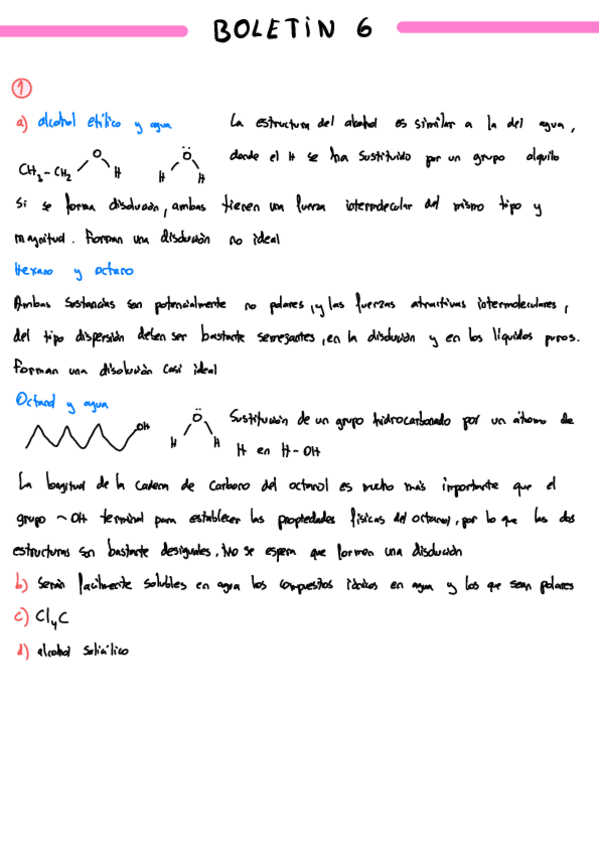 BOLETIN 6
1
a) alcohol etílico y agua
La estructura del alcohol es similar a la del agua,
donde el H se ha sustituido por un grupo alquilo
CH3-CH2 O H H Ö H
Si se forma disolución, ambas tienen una fuerza intermolecular del mismo tipo y
magnitud. Forman una disolución no ideal
Hexano y octano
Ambas sustancias son potencialmente no polares, y las fuerzas atractivas intermoleculares,
del tipo dispersión deben ser bastante semejantes, en la disolución y en los líquidos puros.
Forman una disolución casi ideal
Octanol y agua
OH H Ö H
Sustitución de un grupo hidrocarbonado por un átomo de
H en H-OH
La longitud de la cadena de carbono del octanol es mucho más importante que el
grupo -OH terminal para establecer las propiedades físicas del octanol, por lo que las dos
estructuras son bastante desiguales. No se espera que formen una disolución
b) Serán facilmente solubles en agua los compuestos iónicos en agua y los que sean polares
c) Cl4C
d) alcohol salicílico